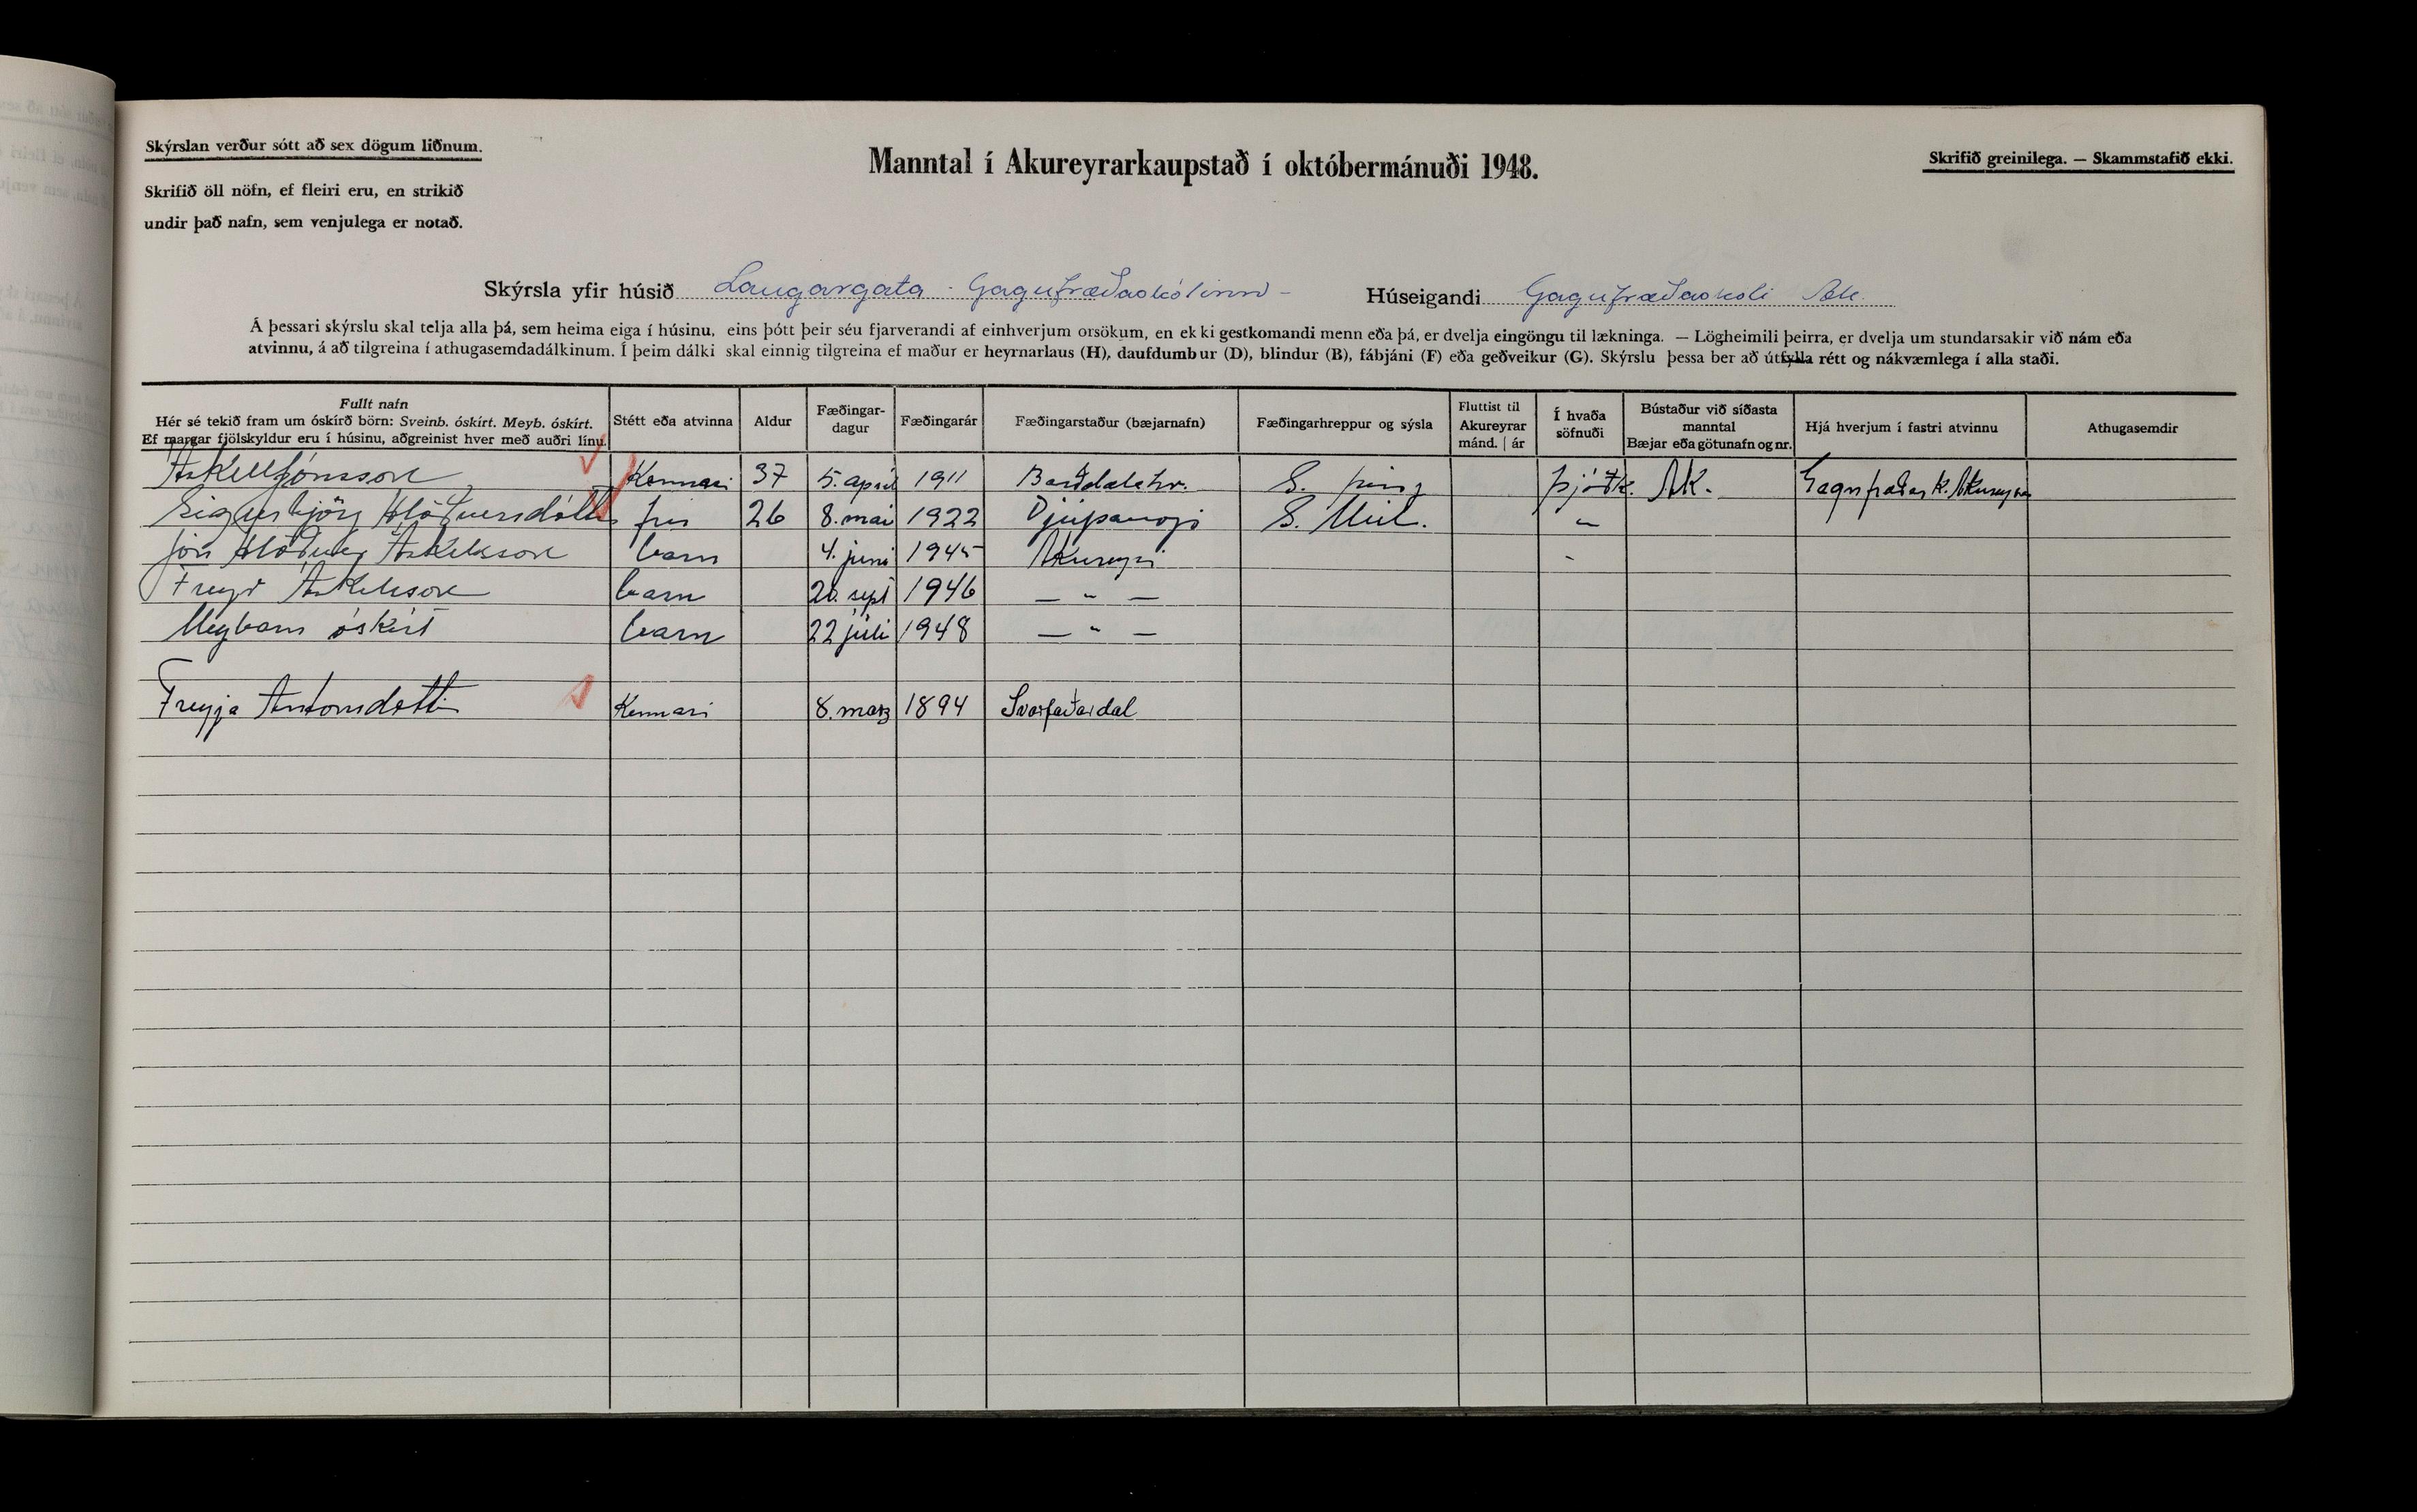 Skýrslan verður sótt að sex dögum liðnum.
Skrifið öll nöfn, ef fleiri eru, en strikið
undir það nafn, sem venjulega er notað.
Manntal í Akureyrarkaupstað í októbermánuði 1948.
Skrifið greinilega. — Skammstafið ekki.
Skýrsla yfir húsið Laugargata - Gagnfræðaskólinn - Húseigandi Gagnfræðaskóli Ak.
Á þessari skýrslu skal telja alla þá, sem heima eiga í húsinu, eins þótt þeir séu fjarverandi af einhverjum orsökum, en ekki gestkomandi menn eða þá, er dvelja eingöngu til lækninga. — Lögheimili þeirra, er dvelja um stundarsakir við nám eða
atvinnu, á að tilgreina í athugasemdadálkinum. Í þeim dálki skal einnig tilgreina ef maður er heyrnarlaus (H), daufdumbur (D), blindur (B), fábjáni (F) eða geðveikur (G). Skýrslu þessa ber að útfylla rétt og nákvæmlega í alla staði.
Fullt nafn
Hér sé tekið fram um óskírð börn: Sveinb. óskírt. Meyb. óskírt.
Ef margar fjölskyldur eru í húsinu, aðgreinist hver með auðri línu.
Stétt eða atvinna
Aldur
Fæðingar-
dagur
Fæðingarár
Fæðingarstaður (bæjarnafn)
Fæðingarhreppur og sýsla
Fluttist til
Akureyrar
mánd. | ár
Í hvaða
söfnuði
Bústaður við síðasta
manntal
Bæjar eða götunafn og nr.
Hjá hverjum í fastri atvinnu
Athugasemdir
Áskell Jónsson Kennari 37 5. apríl 1911 Bárðdælahr. S. Þing þjóðk. Ak. Gagnfræðask. Akureyrar
Sigurbjörg Hlöðversdóttir frú 26 8. maí 1922 Djúpavogi S. Múl. "
Jón Hlöðver Áskelsson barn 4. júní 1945 Akureyri "
Freyr Áskelsson barn 20. sept 1946 — " —
Meybarn óskírt barn 22 júlí 1948 — " —
Freyja Antonsdóttir Kennari 8. marz 1894 Svarfaðardal